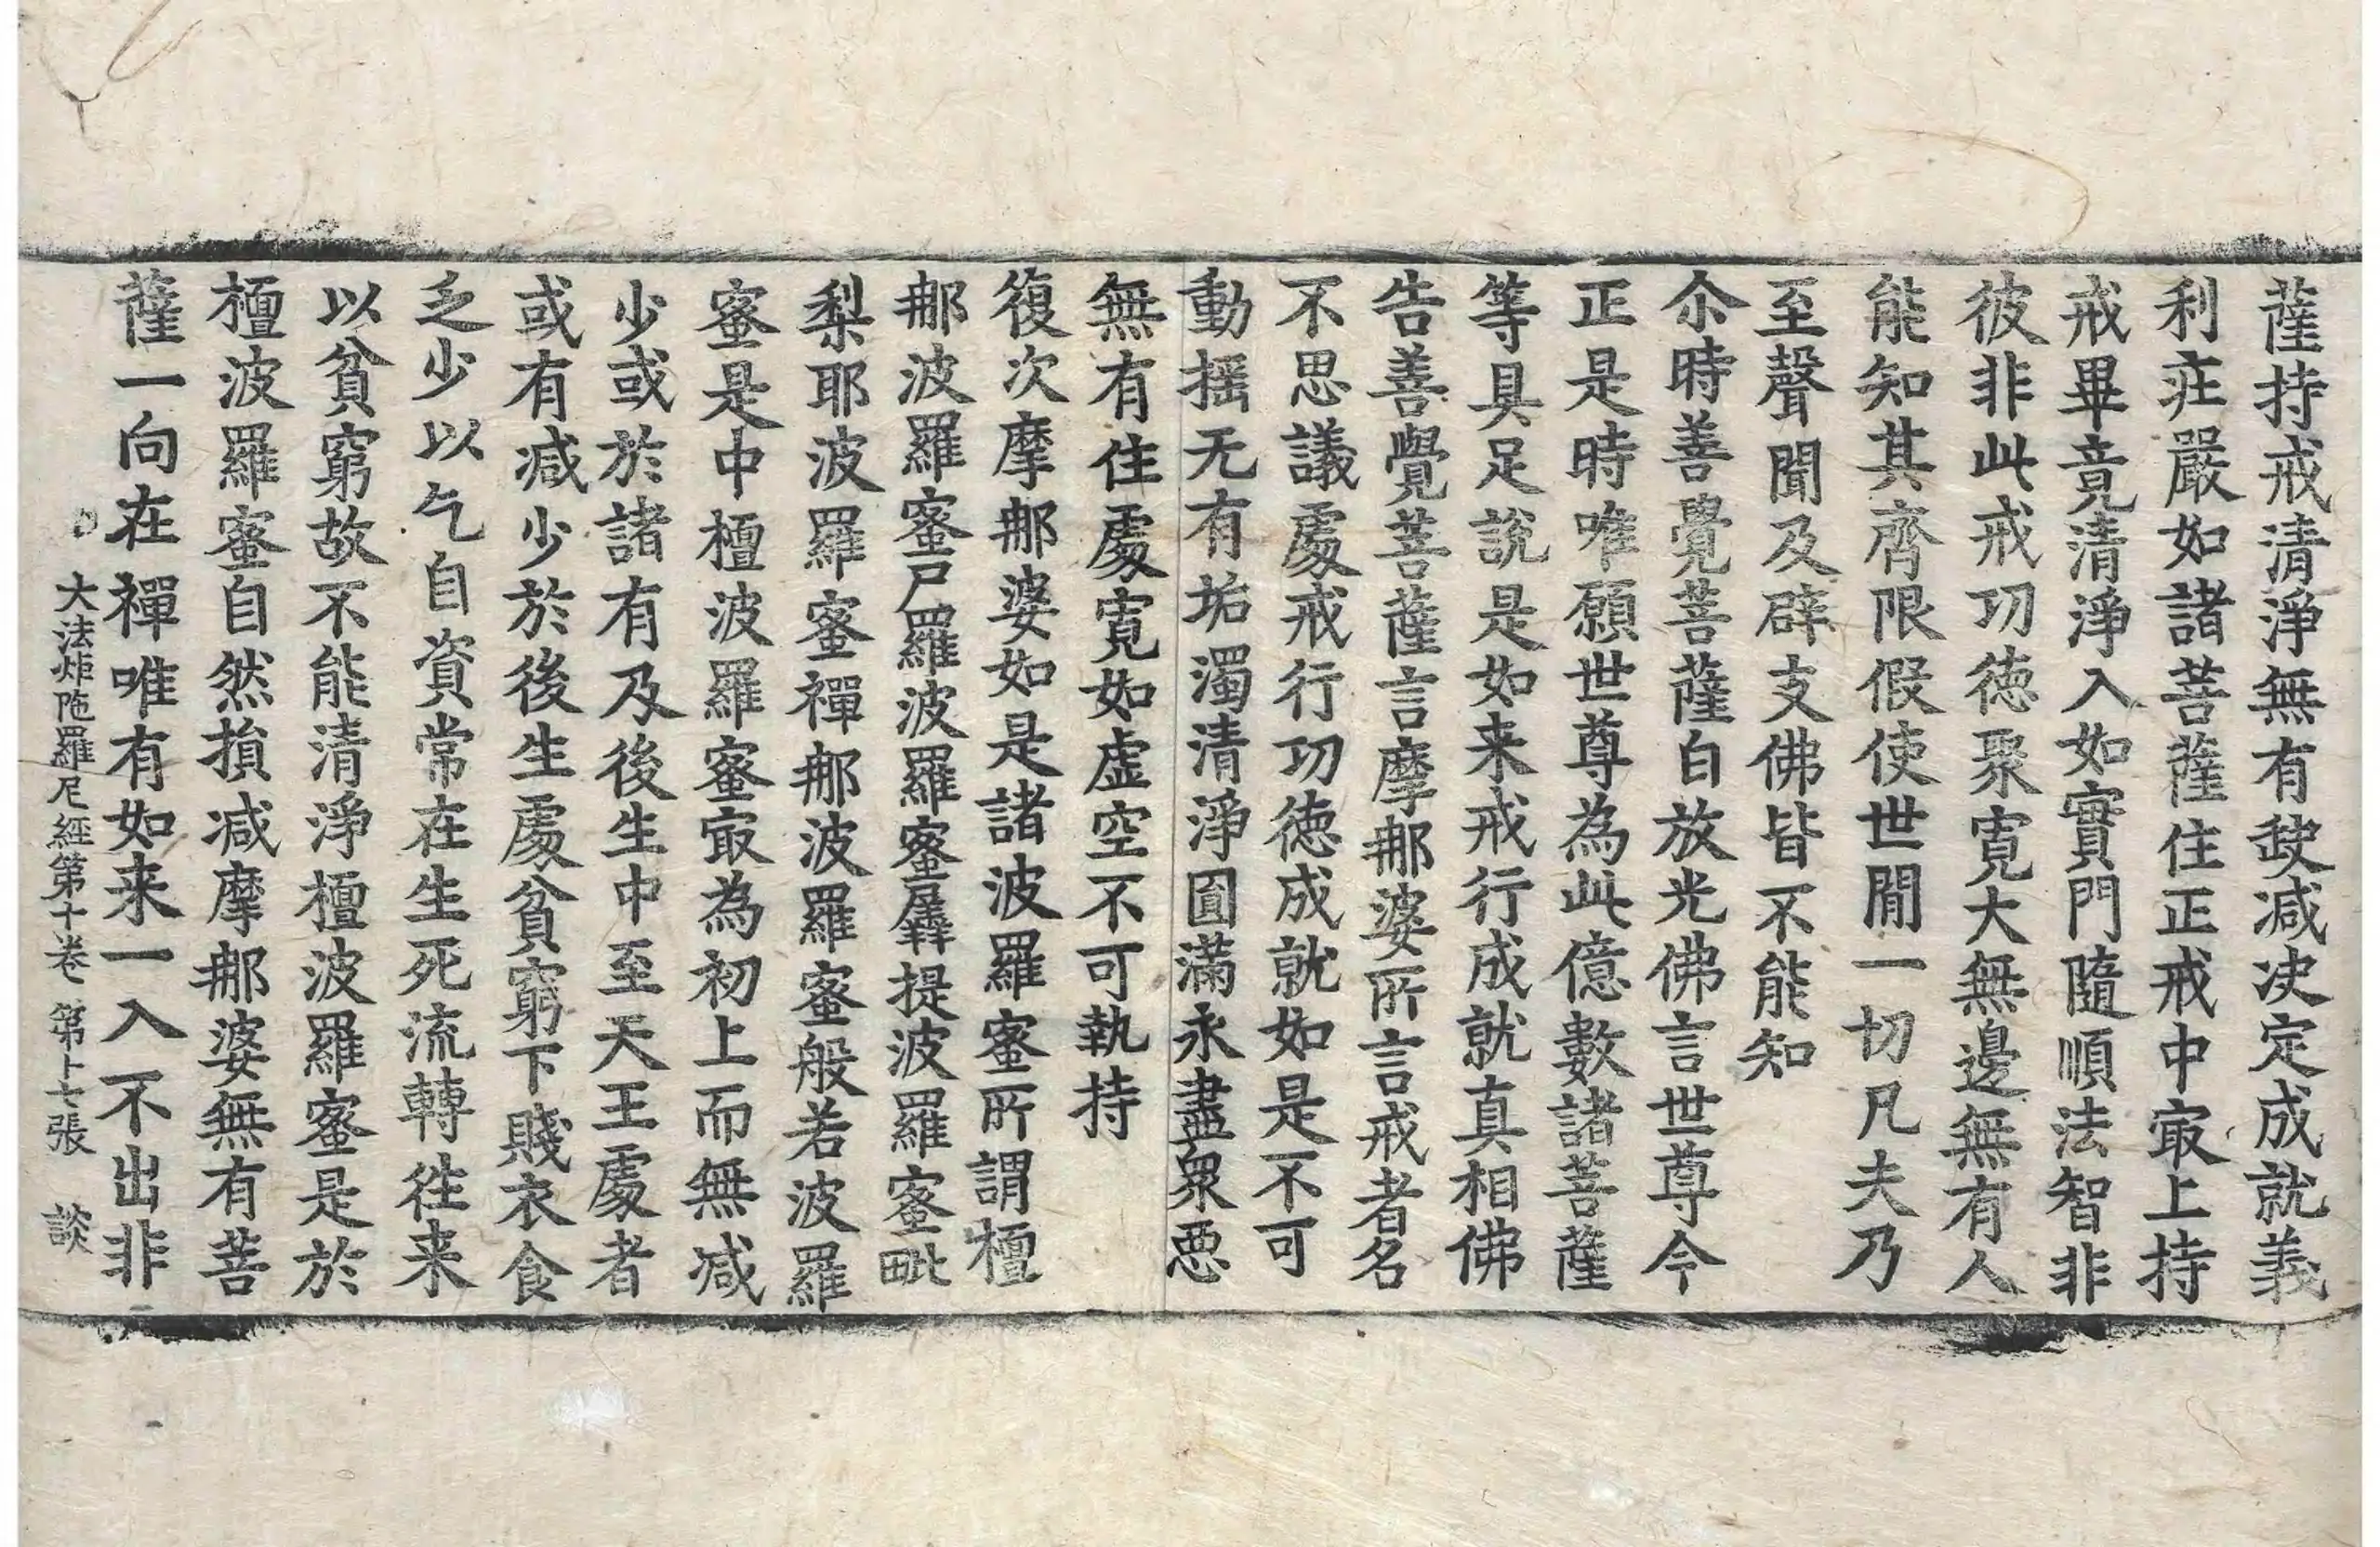 薩持戒清淨無有䟦减决定成就義
利莊嚴如諸菩薩住正戒中㝡上持
戒畢竟清淨入如實門隨順法智非
彼非此戒功徳聚寛大無邊無有人
能知其齊限假使世間一切凡夫乃
至聲聞及辟支佛皆不能知
尒時善覺菩薩白放光佛言世尊今
正是時唯願世尊為此億數諸菩薩
等具足說是如来戒行成就真相佛
告善覺菩薩言摩那婆所言戒者名
不思議處戒行功徳成就如是不可
動摇无有垢濁清淨圓滿永盡衆惡
無有住處寛如虚空不可執持
復次摩那婆如是諸波羅蜜所謂檀
那波羅蜜尸羅波羅蜜羼提波羅蜜毗
梨耶波羅蜜禪那波羅蜜般若波羅
蜜是中檀波羅蜜㝡為初上而無减
少或於諸有及後生中至天王處者
或有减少於後生處貧窮下賤衣食
乏少以乞自資常在生死流轉徃来
以貧窮故不能清淨檀波羅蜜是於
檀波羅蜜自然損减摩那婆無有菩
薩一向在禪唯有如来一入不出非
大法炬陁羅尼經第十卷 第十七張 談